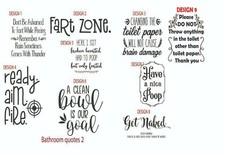 DESIGN 1
Don't Be Ashamed
To Fart While Peeing
Remember
Rain Sometimes
Comes With Thunder
DESIGN 2
fart zone.
DESIGN 3
CHANGING THE
toilet paper
WILL NOT CAUSE
brain damage
DESIGN 9
Please
DO NOT
Throw anything
in the toilet
other than
toilet paper.
Thank you
DESIGN 4
ready
aim
fire.
DESIGN 5
HERE I SIT
broken hearted
HAD TO POOP
but only farted
DESIGN 6
A CLEAN
bowl is
our
goal
Have
a nice
Poop
Get Naked
Bathroom quotes 2